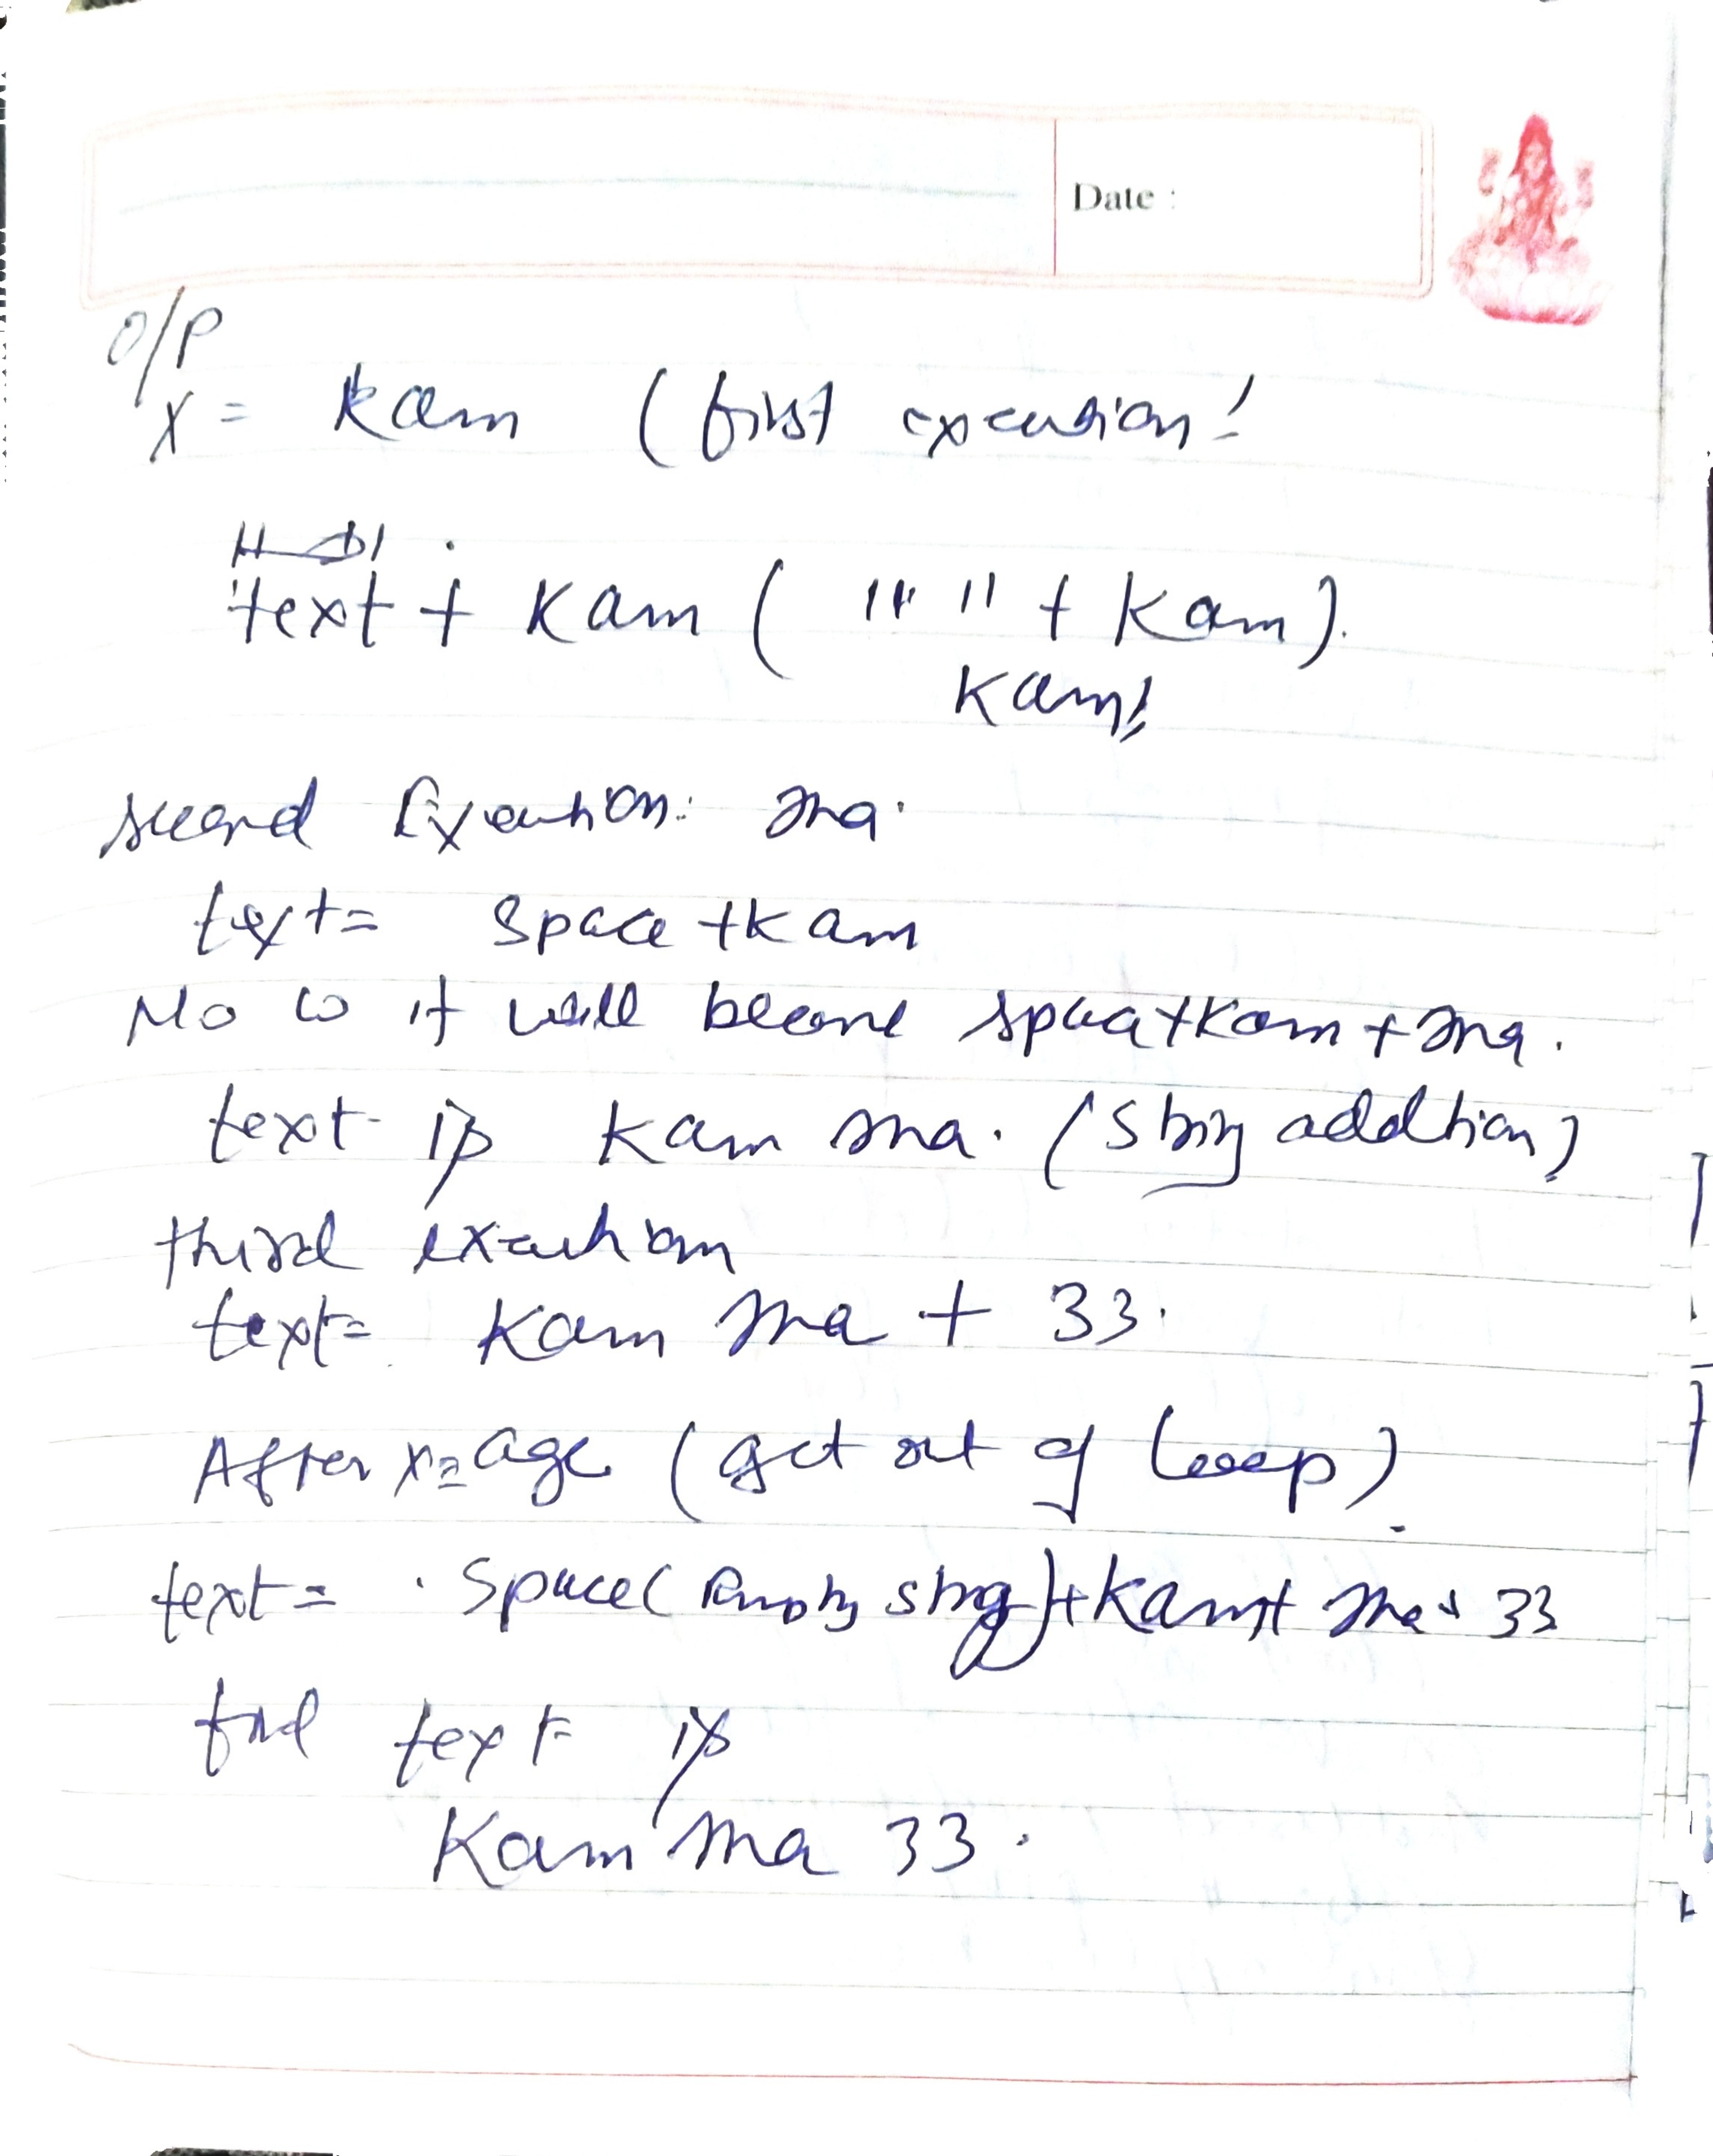 Date :
O/P
x = kam (first execution!
text + kam ( " " + kam).
kam;
second Execution: ma.
text= space +kam
Now it will become space+kam+ma.
text is kam ma. (string addition)
third execution
text= kam ma + 33.
After x=age (get out of loop).
text= space( Empty string)+kam+ ma+ 33
text is
Kam ma 33.